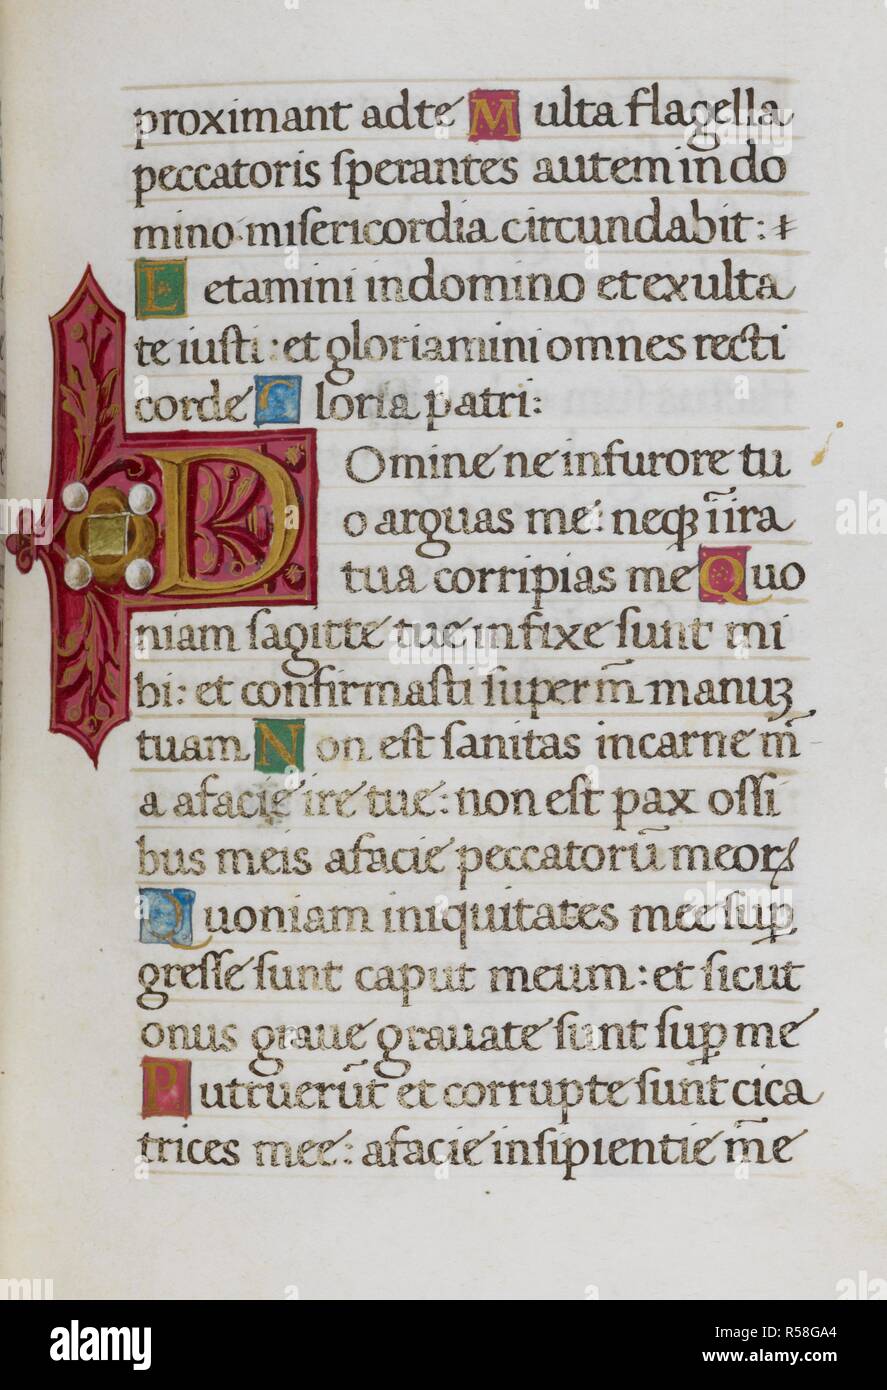 proximant adte Multa flagella
peccatoris ſperantes autem in do
mino miſericordia circundabit:
Letamini in domino et exulta
te iuſti: et gloriamini omnes recti
corde Gloria patri:
Domine ne in furore tu
o arguas me: neqꝫ ī ira
tua corripias me Quo
niam ſagitte tue infixe ſunt mi
bi: et confirmaſti ſuper m̄ manuꝫ
tuam Non eſt ſanitas in carne m̄
a a facie ire tue: non eſt pax oſſi
bus meis a facie peccatorū meoꝝ
Quoniam iniquitates mee ſuꝑ
greſſe ſunt caput meum: et ſicut
onus graue grauate ſunt ſuꝑ me
Putruerūt et corrupte ſunt cica
trices mee: a facie inſipientie m̄e
alamy
Image ID: R58GA4
www.alamy.com